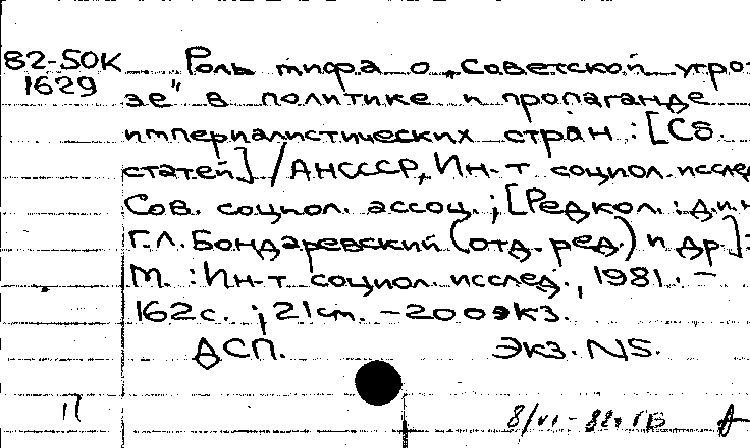 82-5ОК Роль мифа о „Советской угро-
1629 зе" в политике и пропаганде
империалистических стран : [Сб.
статей] / АНСССР, Ин-т социол. исслед
Сов. социол. ассоц. ; [Редкол. : д.и.н
Г.Л. Бондаревский (отд. ред.) и др.].-
М. : Ин-т социол. исслед., 1981. –
162с. ; 21см. – 200экз.
ДСП. Экз. N5.
8/VI-82г